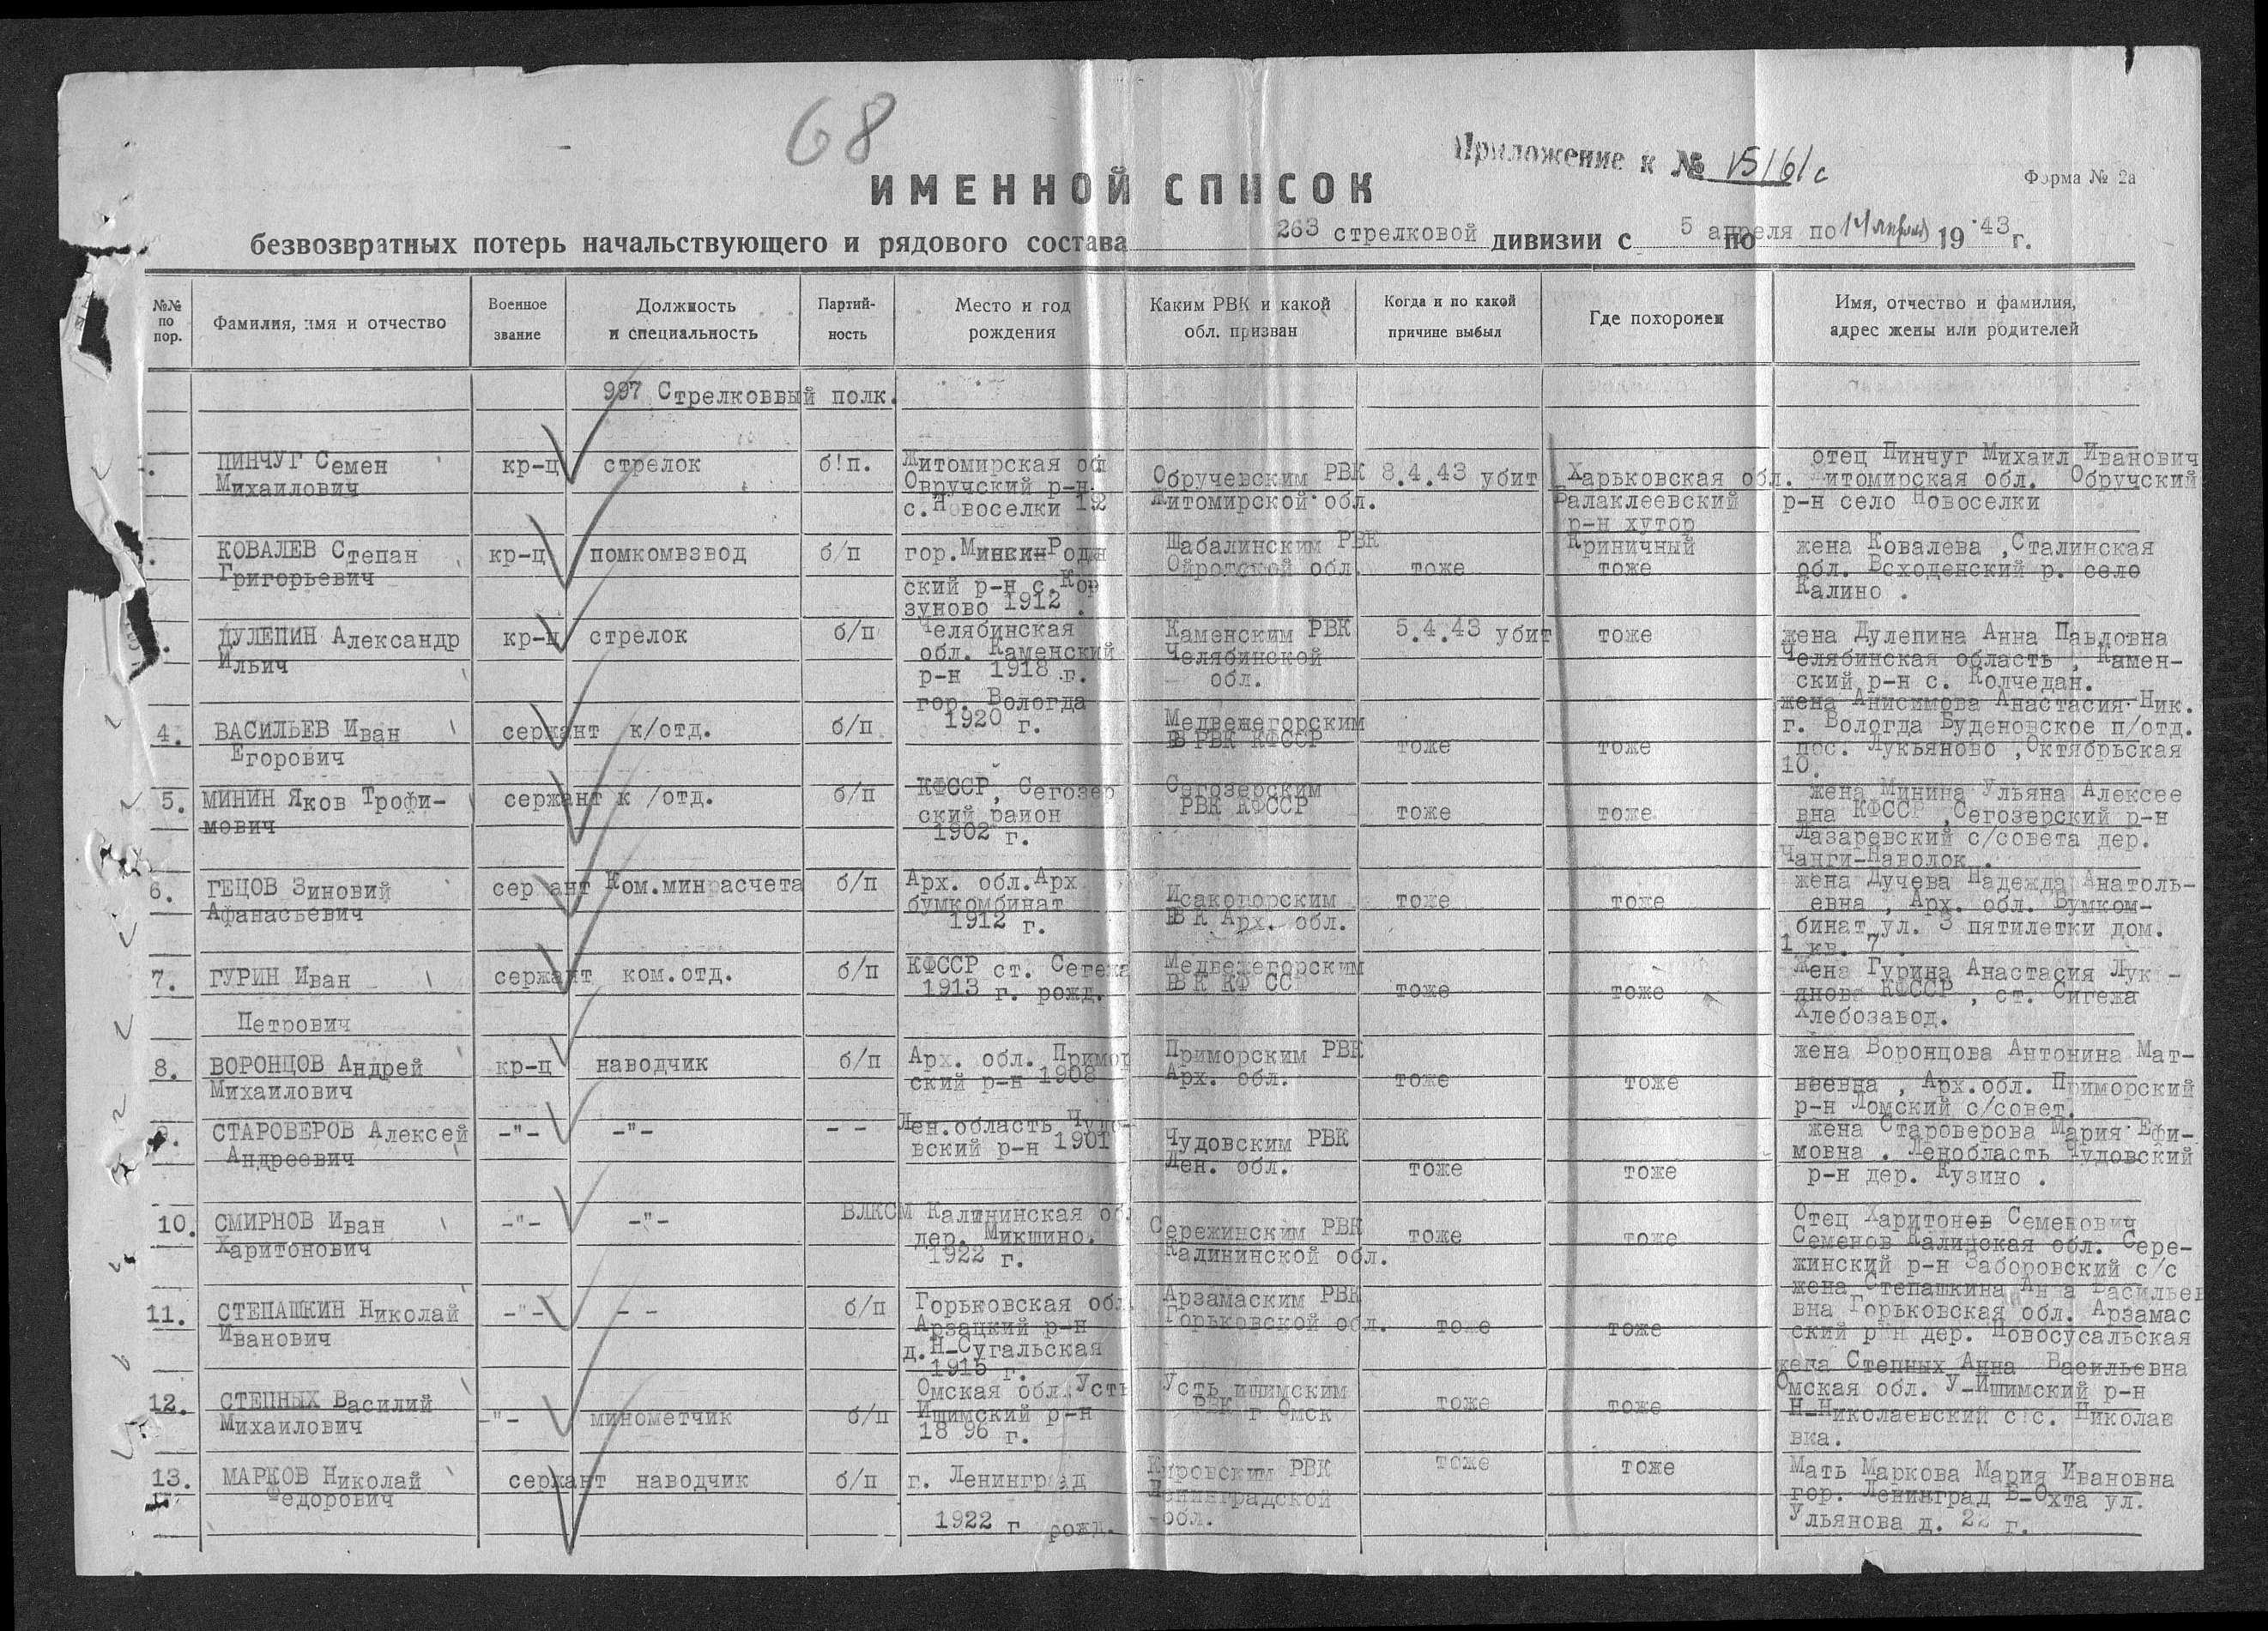 68
Приложение к № 15/61с
Форма № 2а
ИМЕННОЙ СПИСОК
безвозвратных потерь начальствующего и рядового состава 263 стрелковой дивизии с 5 апреля по 14 апреля 1943 г.
№№ по пор.
Фамилия, имя и отчество
Военное звание
Должность и специальность
Партийность
Место и год рождения
Каким РВК и какой обл. призван
Когда и по какой причине выбыл
Где похоронен
Имя, отчество и фамилия, адрес жены или родителей
997 Стрелковвый полк.
ПИНЧУГ Семен Михаилович
кр-ц
стрелок
б!п.
Житомирская обл
Овручский р-н
с.Новоселки 12
Обручевским РВК
Житомирской обл.
8.4.43 убит
Харьковская обл.
Балаклеевский
р-н хутор
Криничный
отец Пинчуг Михаил Иванович
Житомирская обл. Обручский
р-н село Новоселки
КОВАЛЕВ Степан
Григорьевич
кр-ц
помкомвзвод
б/п
ский р-н с.Кор
зуново 1912 .
Шабалинским РВК
Ойротской обл.
тоже
тоже
жена Ковалева ,Сталинская
обл. Всходенский р. село
Калино .
ДУЛЕПИН Александр
Ильич
кр-ц
стрелок
б/п
Челябинская
обл. Каменский
р-н 1918 г.
Каменским РВК
Челябинской
обл.
5.4.43 убит
тоже
жена Дулепина Анна Павловна
Челябинская область , Камен-
ский р-н с. Колчедан.
4.
ВАСИЛЬЕВ Иван
Егорович
сержант
к/отд.
б/п
гор. Вологда
1920 г.
Медвежегорским
РВК КФССР
тоже
тоже
жена Анисимова Анастасия Ник.
г. Вологда Буденовское п/отд.
пос. Лукьяново ,Октябрьская
10.
5.
МИНИН Яков Трофи-
мович
сержант
к /отд.
б/п
КФССР, Сегозер
ский район
1902 г.
Сегозерским
РВК КФССР
тоже
тоже
жена Минина Ульяна Алексее
вна КФССР ,Сегозерский р-н
Лазаревский с/совета дер.
Чанги-Наволок .
6.
ГЕЦОВ Зиновий
Афанасьевич
сержант
Ком.минрасчета
б/п
Арх. обл.Арх
бумкомбинат
1912 г.
Исакогорским
РВК Арх. обл.
тоже
тоже
жена Дучева Надежда Анатоль-
евна , Арх. обл. Бумком-
бинат ул. 3 пятилетки дом.
1 кв. 7 .
7.
ГУРИН Иван
Петрович
сержант
ком.отд.
б/п
КФССР ст. Сегежа
1913 г. рожд.
Медвежегорским
РВК КФ СС
тоже
тоже
Жена Гурина Анастасия Лук -
янов КФССР , ст. Сигежа
Хлебозавод.
8.
ВОРОНЦОВ Андрей
Михаилович
кр-ц
наводчик
б/п
Арх. обл. Примор
ский р-н 1908
Приморским РВК
Арх. обл.
тоже
тоже
жена Воронцова Антонина Мат-
веевна , Арх.обл. Приморский
р-н Ломский с/совет.
9.
СТАРОВЕРОВ Алексей
Андреевич
-"-
-"-
- -
Лен.область Чудо-
вский р-н 1901
Чудовским РВК
Лен. обл.
тоже
тоже
жена Староверова Мария Ефи-
мовна . Ленобласть Чудовский
р-н дер. Кузино .
10.
СМИРНОВ Иван
Харитонович
-"-
-"-
ВЛКСМ
Калининская об.
дер. Микшино.
1922 г.
Сережинским РВК
Калининской обл.
тоже
тоже
Отец Харитонев Семенович
Семенов Калинская обл. Сере-
жинский р-н Заборовский с/с
11.
СТЕПАШКИН Николай
Иванович
-"-
- -
б/п
Горьковская обл
Арзацкий р-н
д.Н-Сугальская
1915 г.
Арзамаским РВК
Горьковской обл.
тоже
тоже
жена Степашкина Анна Васильев
вна Горьковская обл. Арзамас
ский р-н дер. Новосусальская
12.
СТЕПНЫХ Василий
Михаилович
-"-
минометчик
б/п
Омская обл.Усть
Ишимский р-н
1896 г.
Усть ишимским
РВК г Омск
тоже
тоже
жена Степных Анна Васильевна
Омская обл. У-Ишимский р-н
Н-Николаевский с!с. Николае
вка.
13.
МАРКОВ Николай
Федорович
сержант
наводчик
б/п
г. Ленинград
1922 г рожд.
Кировским РВК
Ленинградской
обл.
тоже
тоже
Мать Маркова Мария Ивановна
гор. Ленинград Б-Охта ул.
Ульянова д. 22 г.